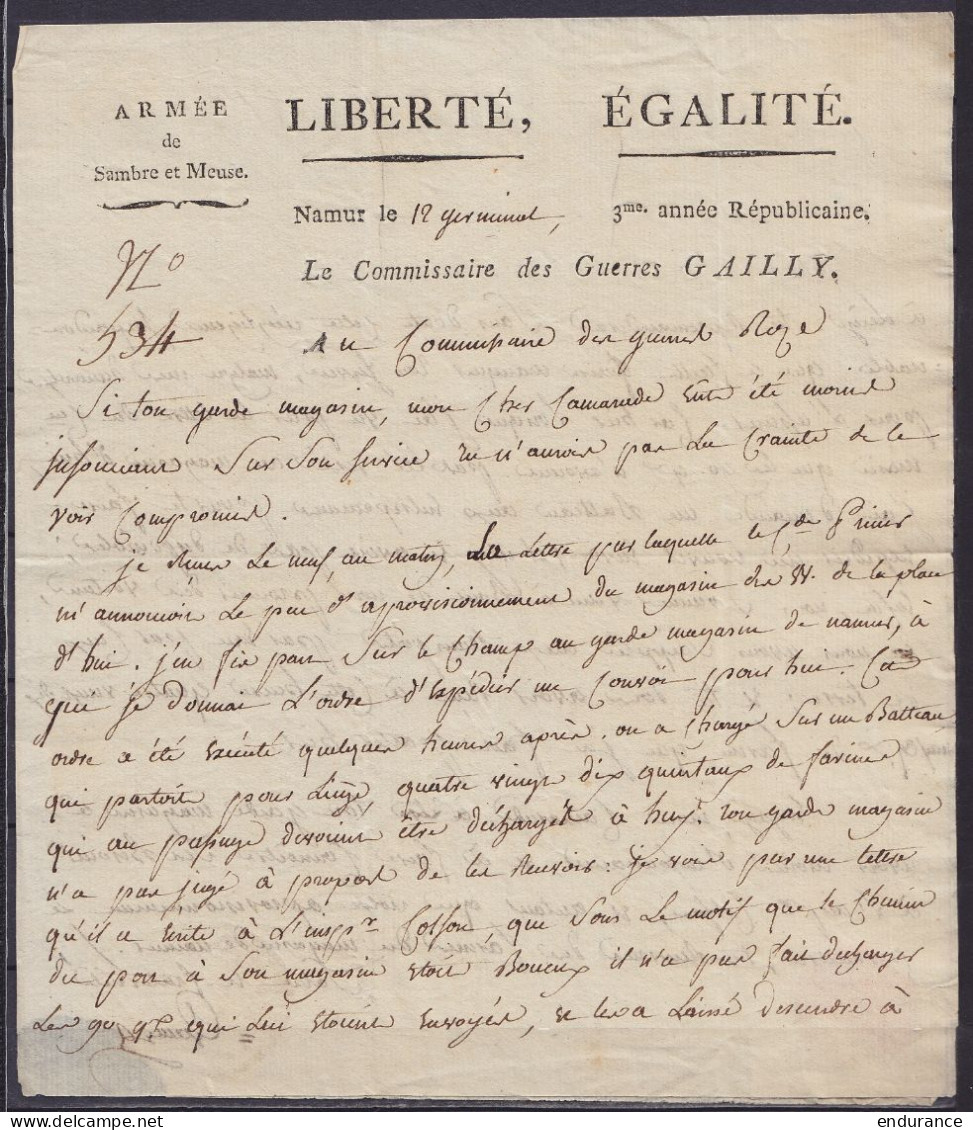 ARMÉE
de
Sambre et Meuse.
LIBERTÉ, ÉGALITÉ.
Namur le 12 germinal, 3me. année Républicaine.
Le Commissaire des Guerres GAILLY.
No
534
Au Commissaire des guerres Roze
Si ton garde magasin, mon Cher Camarade Eut été moins
insouciant Sur Son Service tu n'aurois pas La Crainte de le
voir Compromis.
je reçus Le neuf au matin, La Lettre par laquelle le
m'annonçoit Le peu d'approvisionnement du magasin des de la place
d'hui. j'en fis part Sur le Champ au garde magasin de namur, à
qui je donnai L'ordre d'Expédier un Convoi pour hui. Cet
ordre a été Exécuté quelques heures après. on a Chargé Sur un Batteau
qui partoit pour Liége quatre vingt dix quintaux de farines
qui au passage devoient être déchargés à huy. ton garde magasin
n'a pas jugé à propos de les Recevoir: je vois par une lettre
qu'il a Ecrite à L'inspr Colson, que Sous Le motif que le Chemin
du port à Son magasin Etoit Boueux il n'a pas fait décharger
Les 90 qx qui Lui Etoient Envoyés, et les a Laissé descendre à
endurance